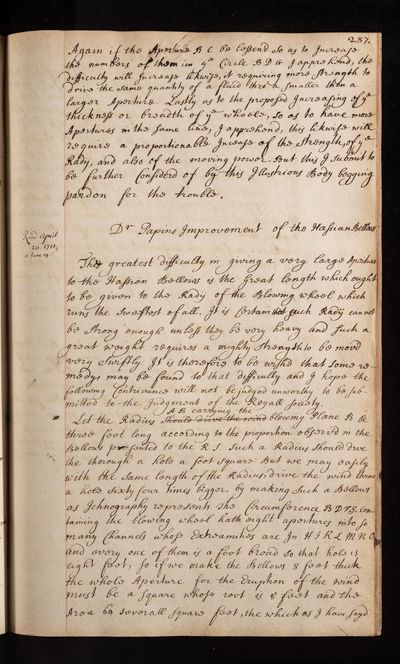 287.
Again if the Aperture B C be lessend so as to Increase
the numbers of them in ye Circle B D &c I apprehend, the
difficulty will Increase likewise, it requiring more strength to
drive the same quantity of a fluid thro a smaller then a
larger Aperture. Lastly as to the proposed Increasing of ye
thickness or breadth of ye wheele, so as to have more
Apertures in the same line, I apprehend, this likewise will
require a proportionable Increase of the strength, of ye
Radÿ, and also of the moving power. But this I submit to
be further Considerd of by this Illustrious Body begging
pardon for the trouble.
Dr Papins Improvement of the Hassian Bellows
Read April
26. 1711
The greatest difficulty in giving a very large Aperture
to the Hassian Bellows is the Great length which ought
to be given to the Radÿ of the Blowing wheel which
runs the Swestest of all, It is Certain that such Radÿ cannot
be strong enough unless they be very heavy and such a
great weight requires a mighty strength to be movd
very swiftly It is therefore to be wishd that some re-
medys may be found to that difficulty and I hope the
following Contrivance will not be judged unworthy to be sub-
mitted to the Judgment of the Royall Society.
A B carrying the
Let the Radius should drive the wind blowing Plane B be
three foot long according to the proportion observd in the
Bellows presented to the R. S. such a Radius should drive
the through a hole a foot square But we may easily
with the same length of the Radius, drive the wind throug
a hole sixty four times bigger, by making such a Bellows
as Ichnography represents. The Circumference B D F G. con-
taining the blowing wheel hath eight apertures into so
many Channels whose Extreamities are In H I K L M N O
and every one of them is a foot broad so that hole is
eight feet, so if we make the Bellows 8 feet thick
the whole Aperture for the Eruption of the wind
must be a square whose root is 8 feet and the
Area 64 severall square feet, the which as I have sayd